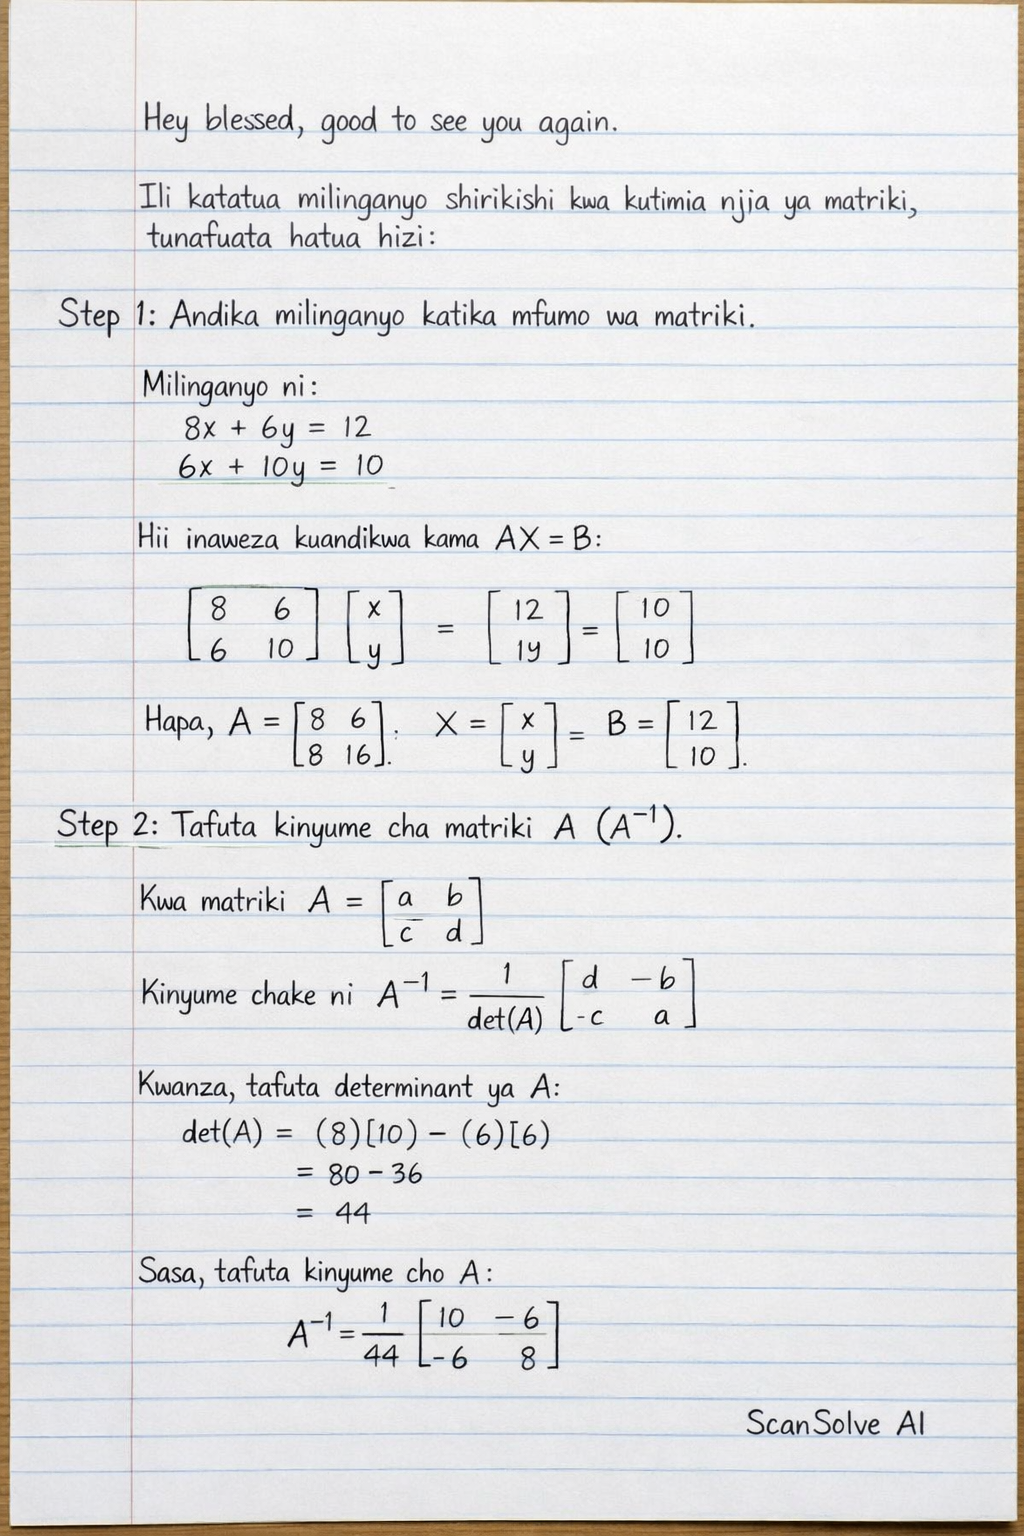 Hey blessed, good to see you again.
Ili katatua milinganyo shirikishi kwa kutimia njia ya matriki,
tunafuata hatua hizi:
Step 1: Andika milinganyo katika mfumo wa matriki.
Milinganyo ni:
8x + 6y = 12
6x + 10y = 10
Hii inaweza kuandikwa kama AX = B:
[8 6 [x = [12 = [10
6 10] y] 1y] 10]
Hapa, A = [8 6 ; X = [x = B = [12
8 16]. y] 10].
Step 2: Tafuta kinyume cha matriki A (A⁻¹).
Kwa matriki A = [a b
c d]
Kinyume chake ni A⁻¹ = 1/det(A) [d -b
-c a]
Kwanza, tafuta determinant ya A:
det(A) = (8)[10) - (6)[6)
= 80 - 36
= 44
Sasa, tafuta kinyume cho A:
A⁻¹ = 1/44 [10 -6
-6 8]
ScanSolve AI